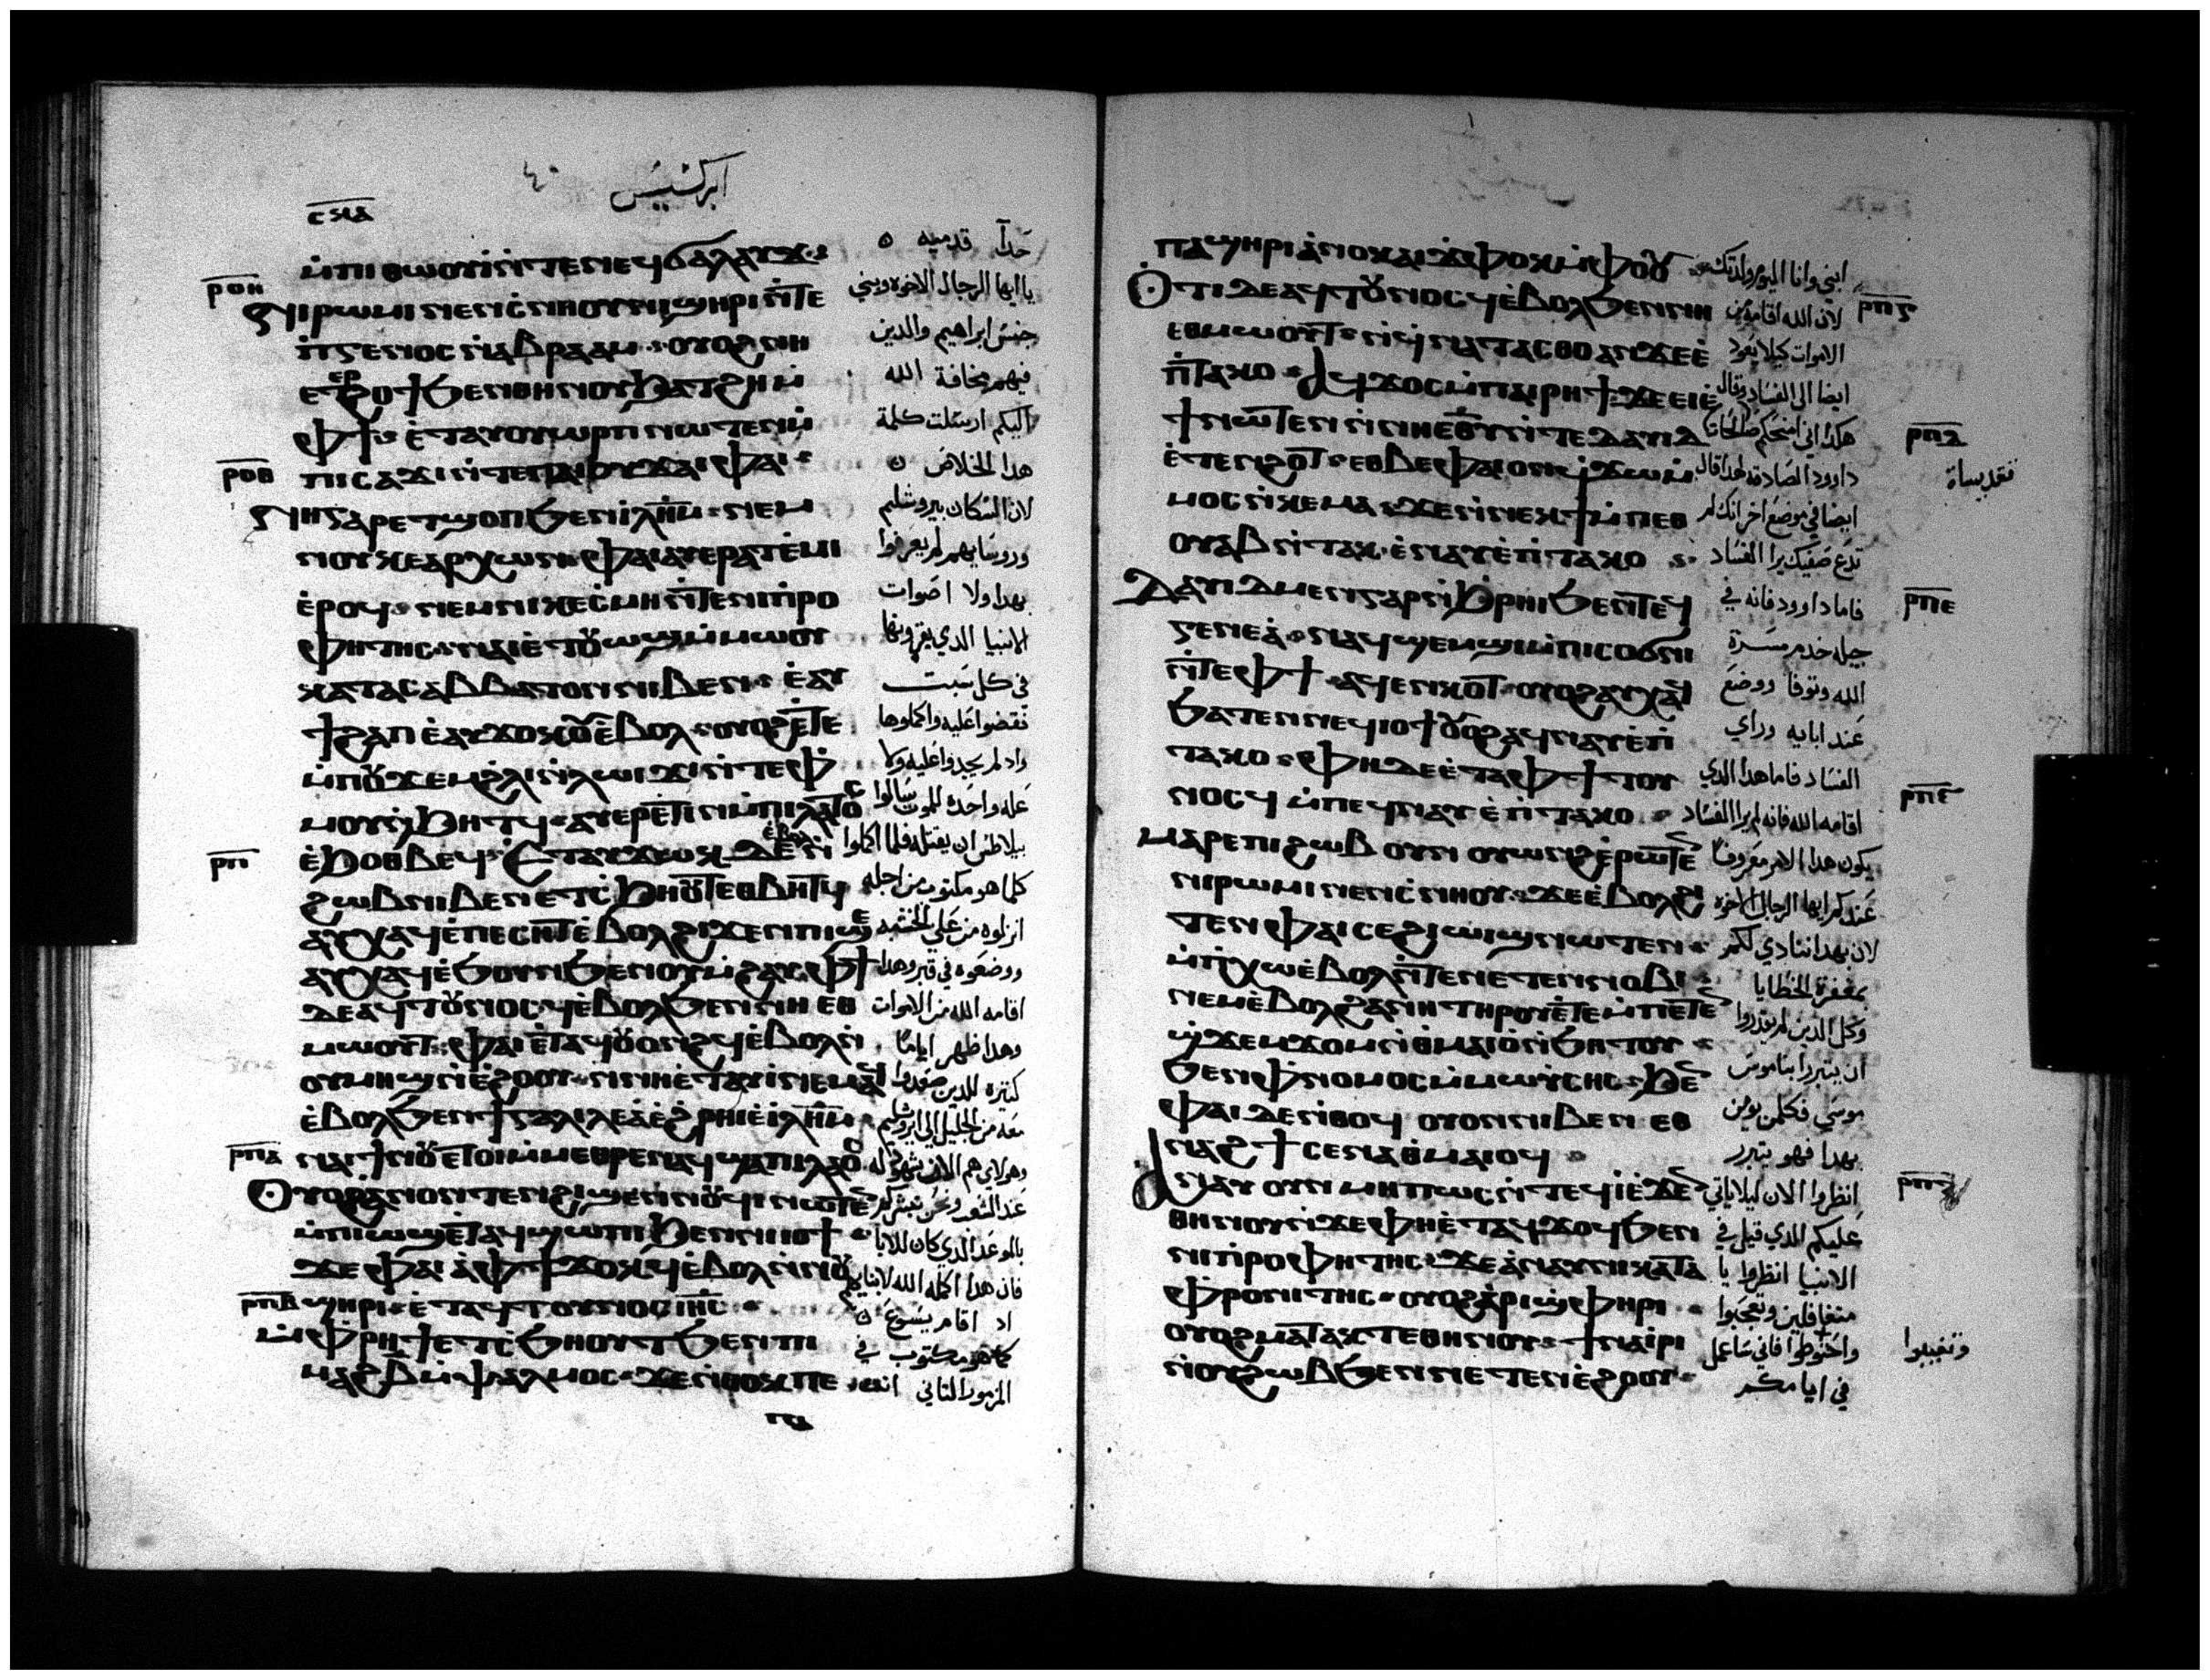 ابركسيس ٤٠
ⲙ̀ⲡⲓⲑⲱⲟⲩⲓ ⲛ̀ⲧⲉⲛⲉϥϭⲁⲗⲁⲩϫ
ⲣⲟⲏ
ⲛⲓⲣⲱⲙⲓ ⲛⲉⲛⲥ̀ⲛⲏⲟⲩ ⲛⲓϣⲏⲣⲓ ⲛ̀ⲧⲉ
ⲡ̀ⲅⲉⲛⲟⲥ ⲛ̀ⲁⲃⲣⲁⲁⲙ ⲟⲩⲟϩ ⲛⲏ
ⲉⲧⲉⲣϩⲟϯ ϧⲉⲛⲑⲏⲛⲟⲩ ϧⲁⲧϩⲏ ⲙ̀
ⲫϯ ⲉ̀ⲧⲁⲩⲟⲩⲱⲣⲡ ⲛⲱⲧⲉⲛ ⲙ̀
ⲣⲟⲑ
ⲡⲓⲥⲁϫⲓ ⲛ̀ⲧⲉⲡⲁⲓⲟⲩϫⲁⲓ ⲫⲁⲓ
ⲛⲏⲅⲁⲣ ⲉⲧϣⲟⲡ ϧⲉⲛ ⲓ̀ⲗⲏⲙ ⲛⲉⲙ
ⲛⲟⲩⲕⲉⲁⲣⲭⲱⲛ ⲫⲁⲓ ⲁⲩⲉⲣⲁⲧⲉ̀ⲙⲓ
ⲉ̀ⲣⲟϥ ⲛⲉⲙ ⲛⲓⲕⲉⲥ̀ⲙⲏ ⲛ̀ⲧⲉⲛⲓⲡ̀ⲣⲟ
ⲫⲏⲧⲏⲥ ⲛⲁⲓ ⲉ̀ⲧⲟⲩⲱϣ ⲙ̀ⲙⲱⲟⲩ
ⲕⲁⲧⲁⲥⲁⲃⲃⲁⲧⲟⲛ ⲛⲓⲃⲉⲛ ⲉ̀ⲁⲩ
ϯϩⲁⲡ ⲉ̀ⲁⲩϫⲟⲕⲟⲩ ⲉ̀ⲃⲟⲗ ⲟⲩⲟϩ ⲉ̀ⲧⲉ
ⲙ̀ⲡⲟⲩϫⲉⲙ ϩ̀ⲗⲓ ⲛ̀ⲗⲱⲓϫⲓ ⲛ̀ⲧⲉⲫ̀
ⲙⲟⲩ ⲛ̀ϧⲏⲧϥ ⲁⲩⲉⲣⲉⲧⲓⲛ ⲙ̀ⲡⲓⲗⲁⲧⲟⲥ
ⲣⲡ
ⲉ̀ϧⲟⲑⲃⲉϥ ⲉⲧⲁⲩϫⲱⲕ ⲇⲉ ⲉ̀ⲃⲟⲗ ⲛ̀
ϩⲱⲃ ⲛⲓⲃⲉⲛ ⲉⲧⲥ̀ϧⲏⲟⲩⲧ ⲉⲑⲃⲏⲧϥ
ⲁⲩⲭⲁϥ ⲉ̀ⲡⲉⲥⲏⲧ ⲉ̀ⲃⲟⲗ ϩⲓϫⲉⲛ ⲡⲓϣⲉ
ⲁⲩⲭⲁϥ ⲉ̀ϧⲟⲩⲛ ϧⲉⲛ ⲟⲩⲙ̀ϩⲁⲩ ⲫϯ
ⲇⲉ ⲁϥⲧⲟⲩⲛⲟⲥϥ ⲉ̀ⲃⲟⲗ ϧⲉⲛ ⲛⲏ ⲉⲑ
ⲙⲱⲟⲩⲧ ⲫⲁⲓ ⲉ̀ⲧⲁϥⲟⲩⲟⲛϩϥ ⲉ̀ⲃⲟⲗ ⲛ̀
ⲟⲩⲙⲏϣ ⲛ̀ⲉ̀ϩⲟⲟⲩ ⲛ̀ⲛⲏ ⲉ̀ⲧⲁⲩⲓ̀ ⲛⲉⲙⲁϥ
ⲉ̀ⲃⲟⲗ ϧⲉⲛ ϯⲅⲁⲗⲓⲗⲉⲁ ⲉ̀ϩ̀ⲣⲏⲓ ⲉ̀ⲓ̀ⲗⲏⲙ
ⲣⲡⲁ
ⲛⲁⲓ ϯⲛⲟⲩ ⲉⲧⲟⲓ ⲙ̀ⲙⲉⲑⲣⲉ ⲛⲁϥ ϣⲁ ⲡⲓⲗⲁⲟⲥ
ⲟⲩⲟϩ ⲁ̀ⲛⲟⲛ ⲧⲉⲛϩⲓϣⲉⲛⲛⲟⲩϥⲓ ⲛⲱⲧⲉⲛ
ⲙ̀ⲡⲓⲱϣ ⲉ̀ⲧⲁϥϣⲱⲡⲓ ϧⲉⲛ ⲛⲓⲓⲟϯ
ϫⲉ ⲫⲁⲓ ⲁ̀ⲫϯ ϫⲟⲕϥ ⲉ̀ⲃⲟⲗ ⲛ̀ⲛⲟⲩ
ⲣⲡⲃ
ϣⲏⲣⲓ ⲉ̀ⲧⲁϥⲧⲟⲩⲛⲟⲥ ⲓⲏⲥ
ⲙ̀ⲫ̀ⲣⲏϯ ⲉⲧⲥ̀ϧⲏⲟⲩⲧ ϧⲉⲛ ⲡⲓ
ⲙⲁϩⲃ ⲙ̀ⲯⲁⲗⲙⲟⲥ ϫⲉ ⲛ̀ⲑⲟⲕ ⲡⲉ
ⲡⲁ
حدآ قدميه
ياايها الرجال الاخوه وبني
جنس ابراهيم والدين
فيهم مخافة الله
اليكم ارسلت كلمة
هدا الخلاص
لان السكان بيروشليم
وروسايهم لم يعرفوا
بهدا ولا اصوات
الانبيا الدي يقرونها
في كل سبت
فقضوا عليه واكملوها
واد لم يجدوا عليه ولا
عله واحده للموت سالوا
بيلاطس ان يقتله فلما اكملوا
كلما هو مكتوب من اجله
انزلوه من علي الخشبه
ووضعوه في قبر وهدا
اقامه الله من الاموات
وهدا ظهر اياما
كتيره للدين صعدوا
معه من الجليل الي ايروشليم
وهولاي هم الان شهود له
عند الشعب ونحن نبشركم
بالموعد الدي كان للابا
فان هدا اكمله الله لابنايهم
اد اقام يسوع
كما هو مكتوب في
المزمور التاني انت
ⲡⲁϣⲏⲣⲓ ⲁ̀ⲛⲟⲕ ⲁⲓϫ̀ⲫⲟⲕ ⲙ̀ⲫⲟⲟⲩ
ⲟⲧⲓ ⲇⲉ ⲁϥⲧⲟⲩⲛⲟⲥϥ ⲉ̀ⲃⲟⲗ ϧⲉⲛ ⲛⲏ
ⲉⲑⲙⲱⲟⲩⲧ ⲛ̀ϥ̀ⲛⲁⲧⲁⲥⲑⲟ ⲁⲛ ϫⲉ ⲉ̀
ⲡ̀ⲧⲁⲕⲟ ⲁϥϫⲟⲥ ⲙ̀ⲡⲁⲓⲣⲏϯ ϫⲉ ⲉⲓⲉ̀
ϯ ⲛⲱⲧⲉⲛ ⲛ̀ⲛⲏ ⲉⲑⲩ ⲛ̀ⲧⲉ ⲇⲁⲩⲓⲇ
ⲉ̀ⲧⲉⲛϩⲟⲧ ⲉⲑⲃⲉⲫⲁⲓ ⲟⲛ ϥ̀ϫⲱ ⲙ̀
ⲙⲟⲥ ⲛ̀ⲕⲉⲙⲁ ϫⲉ ⲛ̀ⲛⲉⲕϯ ⲙ̀ⲡⲉⲑ
ⲟⲩⲁⲃ ⲛ̀ⲧⲁⲕ ⲉ̀ⲛⲁⲩ ⲉ̀ⲡ̀ⲧⲁⲕⲟ
ⲇⲁⲩⲓⲇ ⲙⲉⲛ ⲅⲁⲣ ⲛ̀ϩ̀ⲣⲏⲓ ϧⲉⲛ ⲧⲉϥ
ⲅⲉⲛⲉⲁ̀ ⲛⲁϥϣⲉⲙϣⲓ ⲙ̀ⲡⲓⲥⲟϭⲛⲓ
ⲛ̀ⲧⲉⲫϯ ⲁϥⲉⲛⲕⲟⲧ ⲟⲩⲟϩ ⲁⲩⲭⲁϥ
ϧⲁⲧⲉⲛ ⲛⲉϥⲓⲟϯ ⲟⲩⲟϩ ⲁϥⲛⲁⲩ ⲉ̀ⲡ̀
ⲧⲁⲕⲟ ⲫⲏ ⲇⲉ ⲉ̀ⲧⲁⲫϯ ⲧⲟⲩ
ⲛⲟⲥϥ ⲙ̀ⲡⲉϥⲛⲁⲩ ⲉ̀ⲡ̀ⲧⲁⲕⲟ
ⲙⲁⲣⲉ ⲡⲓϩⲱⲃ ⲟⲩⲛ ⲟⲩⲱⲛϩ ⲉ̀ⲣⲱⲧⲉⲛ
ⲛⲓⲣⲱⲙⲓ ⲛⲉⲛⲥ̀ⲛⲏⲟⲩ ϫⲉ ⲉ̀ⲃⲟⲗ ϩⲓ
ⲧⲉⲛ ⲫⲁⲓ ⲥⲉϩⲓⲱⲓϣ ⲛⲱⲧⲉⲛ
ⲙ̀ⲡⲭⲱ ⲉ̀ⲃⲟⲗ ⲛ̀ⲧⲉⲛⲉⲧⲉⲛⲛⲟⲃⲓ
ⲛⲉⲙ ⲉ̀ⲃⲟⲗ ϩⲁ ⲛⲏ ⲧⲏⲣⲟⲩ ⲉ̀ⲧⲉⲙ̀ⲡⲉⲧⲉⲛ
ϣ̀ϫⲉⲙϫⲟⲙ ⲛ̀ⲑⲙⲁⲓⲟ̀ ⲛ̀ϧⲏⲧⲟⲩ
ϧⲉⲛ ⲫ̀ⲛⲟⲙⲟⲥ ⲙ̀ⲙⲱⲩⲥⲏⲥ ϧⲉⲛ
ⲫⲁⲓ ⲇⲉ ⲛ̀ⲑⲟϥ ⲟⲩⲟⲛ ⲛⲓⲃⲉⲛ ⲉⲑ
ⲛⲁϩϯ ⲥⲉⲛⲁⲑⲙⲁⲓⲟϥ
ⲁⲛⲁⲩ ⲟⲩⲛ ⲙⲏⲡⲱⲥ ⲛ̀ⲧⲉϥⲓ̀ ⲉ̀ϫⲉⲛ
ⲑⲏⲛⲟⲩ ⲛ̀ϫⲉ ⲫⲏ ⲉ̀ⲧⲁϥϫⲟϥ ϧⲉⲛ
ⲛⲓⲡ̀ⲣⲟⲫⲏⲧⲏⲥ ϫⲉ ⲁ̀ⲛⲁⲩ ⲛⲓⲕⲁⲧⲁ
ⲫⲣⲟⲛⲓⲧⲏⲥ ⲟⲩⲟϩ ⲁ̀ⲣⲓϣ̀ⲫⲏⲣⲓ
ⲟⲩⲟϩ ⲙⲁⲧⲁⲕⲧⲉ ⲑⲏⲛⲟⲩ ϯⲛⲁⲓ̀ⲣⲓ
ⲛ̀ⲟⲩϩⲱⲃ ϧⲉⲛ ⲛⲉⲧⲉⲛⲉ̀ϩⲟⲟⲩ
ابني وانا اليوم ولدتك
لان الله اقامه من
ⲣⲡⲅ
الاموات كيلا يعود
ايضا الي الفساد وقال
هكدا اني امنحكم
ⲣⲡⲇ
داوود الصادقه لهدا قال
ايضا في موضع اخر انك لم
تدع صفيك يرا الفساد
فاما داوود فانه في
ⲣⲡⲉ
جيله خدم مسرة
الله وتوفا ووضع
عند ابايه وراي
الفساد فاما هدا الدي
اقامه الله فانه لم يرا الفساد
يكون هدا الامر معروفا
عندكم ايها الرجال الاخوه
لان بهدا ننادي لكم
بمغفرة الخطايا
وكل الدين لم يقدروا
ان يتبررا بناموس
موسي فكلمن يومن
بهدا فهو يتبرر
انظروا الان ليلا ياتي
عليكم الدي قيل في
الانبيا انظروا يا
متغافلين وتعجبوا
فاني ساعمل
في ايامكم